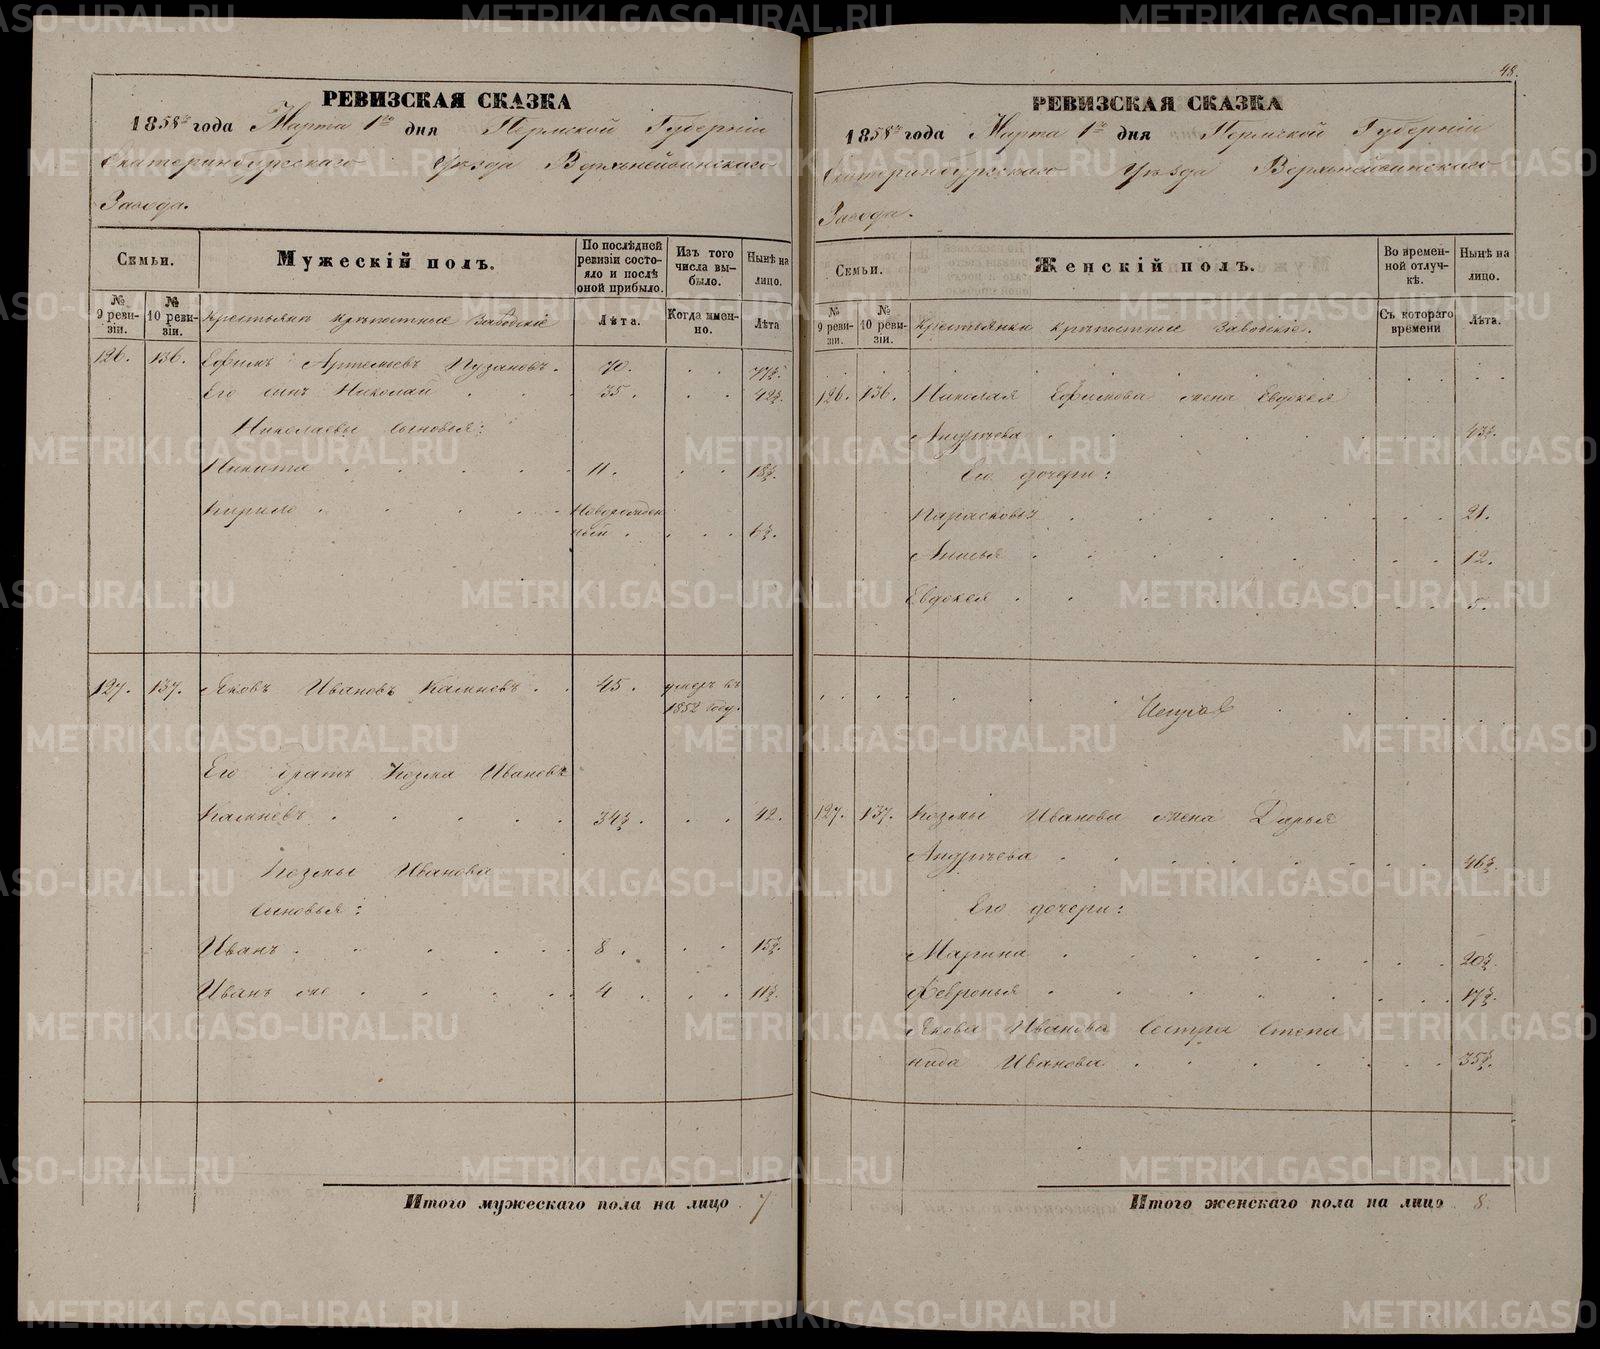 48.
РЕВИЗСКАЯ СКАЗКА
1858го года Марта 1го дня Пермской Губерніи
Екатеринбургскаго Уѣзда Верхнейвинскаго
Завода.
Семьи.
Мужескій полъ.
По послѣдней ревизіи состояло и послѣ оной прибыло.
Изъ того числа выбыло.
Нынѣ на лицо.
№ 9 ревизіи.
№ 10 ревизіи.
Крестьянъ крѣпостные Заводскіе
Лѣта.
Когда именно.
Лѣта
126. 136. Ефимъ Артемьевъ Пузановъ. 70. 77½.
Его сынъ Николай 35. 42½.
Николаевы сыновья:
Никита 11. 18½.
Кирило Новорожден
ный 6½.
127. 137. Яковъ Ивановъ Калинёвъ 45. умеръ въ
1852 году.
Его братъ Козма Ивановъ
34½. 42.
Козмы Иванова
сыновья:
Иванъ 8. 15½.
Иванъ же 4. 11½.
Итого мужескаго пола на лицо 7
РЕВИЗСКАЯ СКАЗКА
1858го года Марта 1го дня Пермской Губерніи
Екатеринбургскаго Уѣзда Верхнейвинскаго
Завода.
Семьи.
Женскій полъ.
Во временной отлучкѣ.
Нынѣ на лицо.
№ 9 ревизіи.
№ 10 ревизіи.
Крестьянки крѣпостные Заводскіе.
Съ котораго времени
Лѣта.
126. 136. Николая Ефимова жена Евдокея
Андрѣева 43½.
Его дочери:
Парасковья 21.
Анисья 12.
Евдокея 5.
127. 137. Козмы Иванова жена Дарья
Андрѣева 46½.
Его дочери:
Марина 20½.
Февронья 17½.
Якова Иванова Сестра Степа
нида Иванова 35½.
Итого женскаго пола на лицо 8.
METRIKI.GASO-URAL.RU